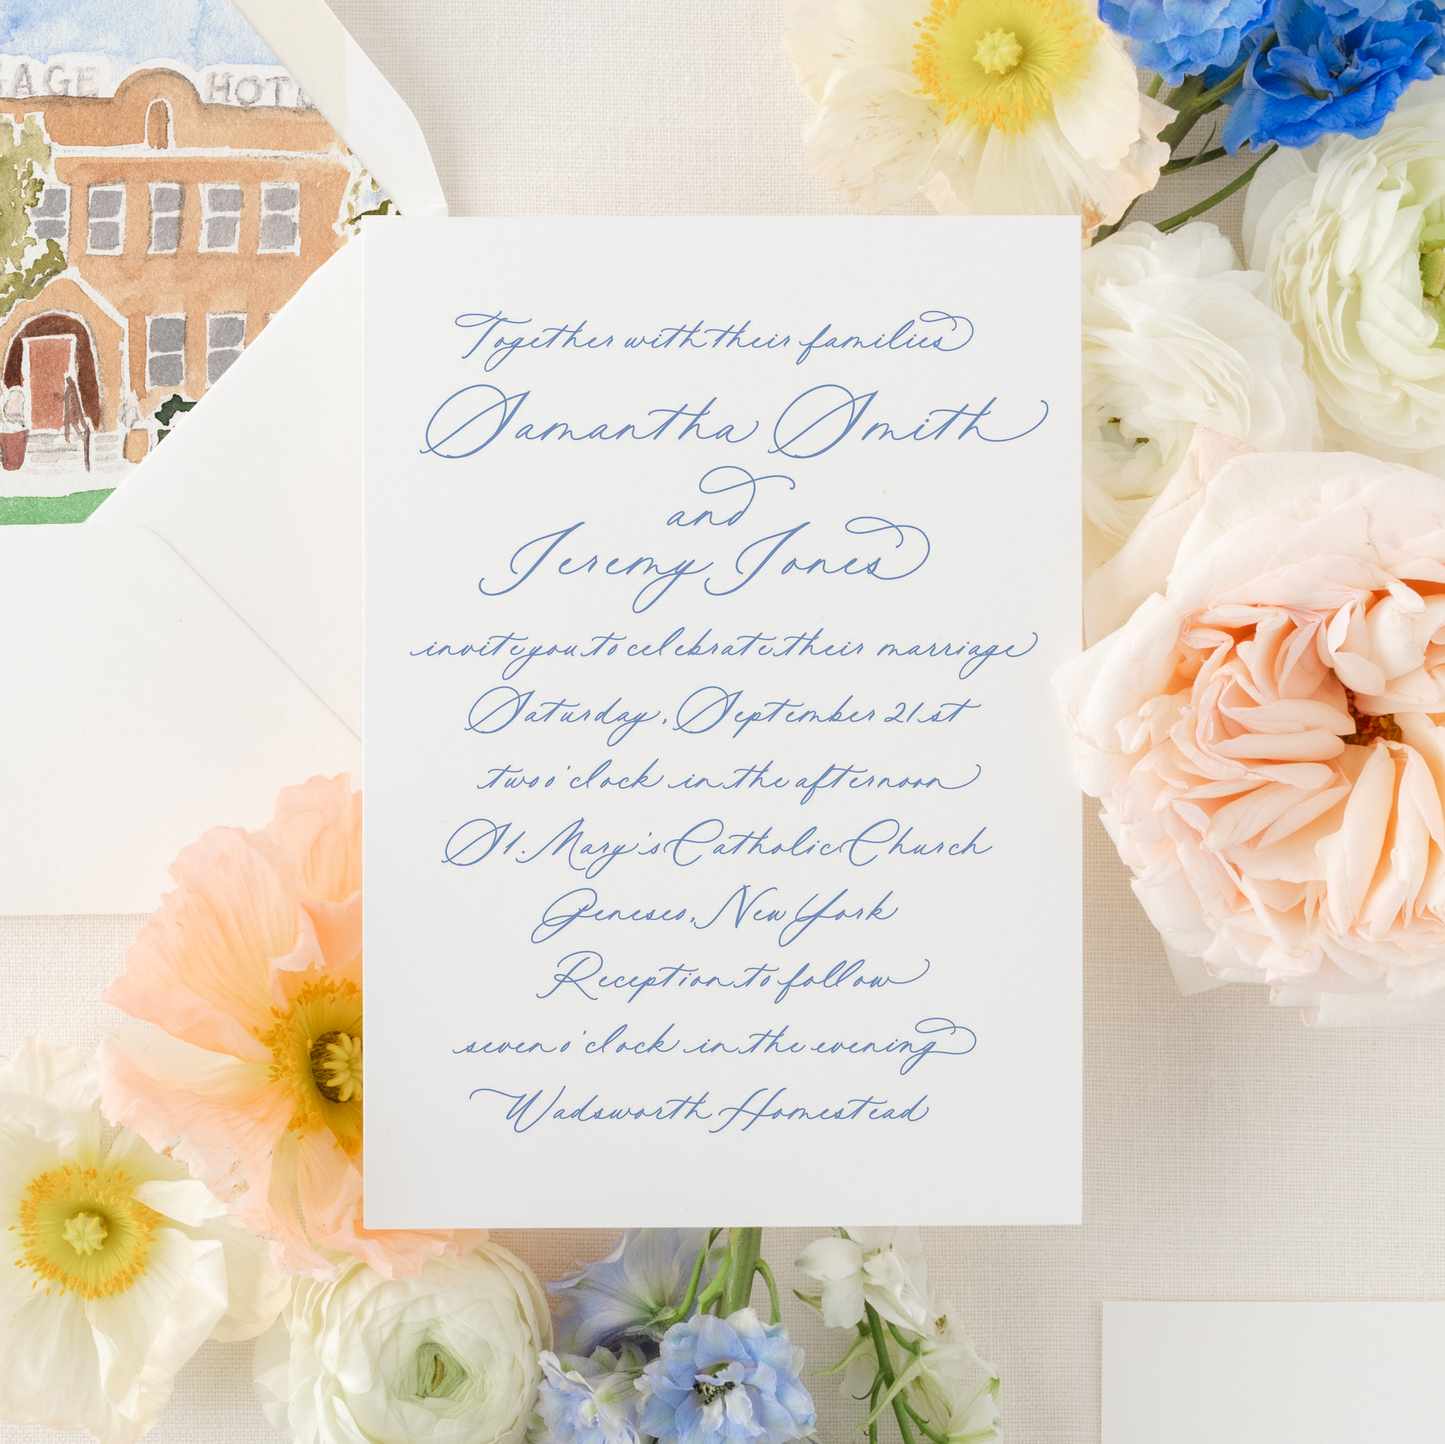 GAGE HOT
Together with their families
Samantha Smith
and
Jeremy Jones
invite you to celebrate their marriage
Saturday, September 21st
two o'clock in the afternoon
St. Mary's Catholic Church
Geneseo, New York
Reception to follow
seven o'clock in the evening
Wadsworth Homestead